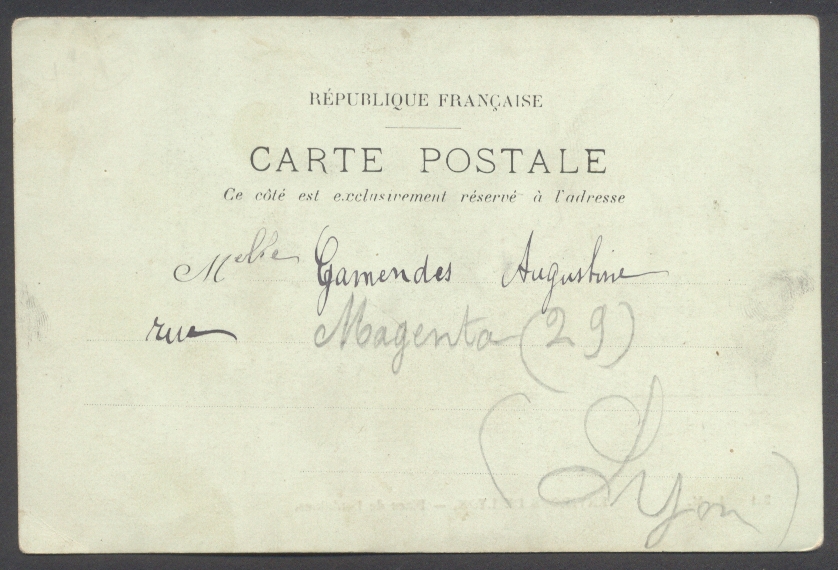 RÉPUBLIQUE FRANÇAISE
CARTE POSTALE
Ce côté est exclusivement réservé à l'adresse
Melle Gamendes Augustine
rue Magenta (29)
(Lyon)